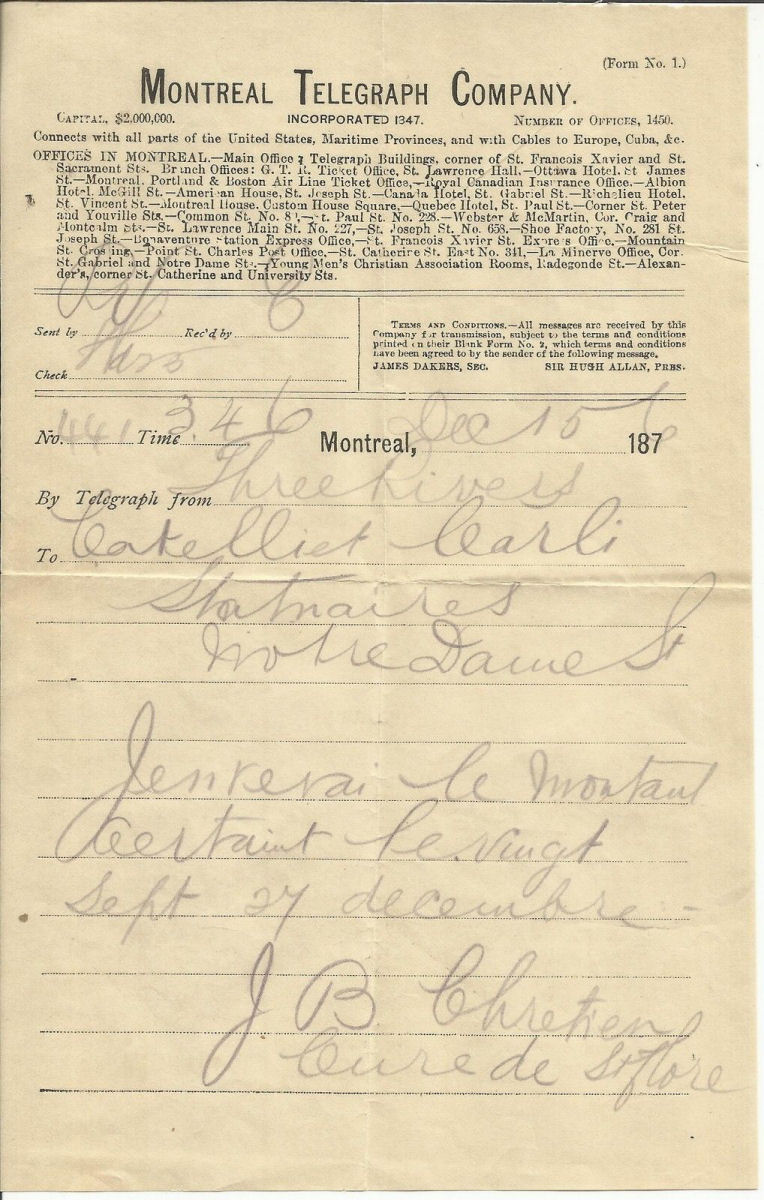 (Form No. 1.)
MONTREAL TELEGRAPH COMPANY.
CAPITAL, $2,000,000. INCORPORATED 1847. NUMBER OF OFFICES, 1450.
Connects with all parts of the United States, Maritime Provinces, and with Cables to Europe, Cuba, &c.
OFFICES IN MONTREAL.—Main Office: Telegraph Buildings, corner of St. Francois Xavier and St.
Sacrament Sts. Branch Offices: G. T. R. Ticket Office, St. Lawrence Hall,—Ottawa Hotel, St James
St.—Montreal, Portland & Boston Air Line Ticket Office,—Royal Canadian Insurance Office.—Albion
Hotel, McGill St.—American House, St. Joseph St.—Canada Hotel, St. Gabriel St.—Richelieu Hotel,
St. Vincent St.—Montreal House, Custom House Square,—Quebec Hotel, St. Paul St.—Corner St. Peter
and Youville Sts.—Common St. No. 8,—St. Paul St. No. 228.—Webster & McMartin, Cor. Craig and
Montcalm Sts.—St. Lawrence Main St. No. 227,—St. Joseph St. No. 658.—Shoe Factory, No. 281 St.
Joseph St.—Bonaventure Station Express Office,—St. Francois Xavier St. Express Office,—Mountain
St. Crossing,—Point St. Charles Post Office.—St. Catherine St. East No. 341,—La Minerve Office, Cor.
St. Gabriel and Notre Dame Sts.—Young Men's Christian Association Rooms, Radegonde St.—Alexan-
der's, corner St. Catherine and University Sts.
Sent by Rec'd by C
Check
TERMS AND CONDITIONS.—All messages are received by this
Company for transmission, subject to the terms and conditions
printed on their Blank Form No. 2, which terms and conditions
have been agreed to by the sender of the following message.
JAMES DAKERS, SEC. SIR HUGH ALLAN, PRES.
No. 441 Time 346 Montreal, Dec 15 1876
By Telegraph from Three Rivers
To Catelliet Carli
Statuaires
Notre Dame St
Jenverai le montant
certaint le vingt
Sept 27 decembre -
J B Chretien
Cure de St flore